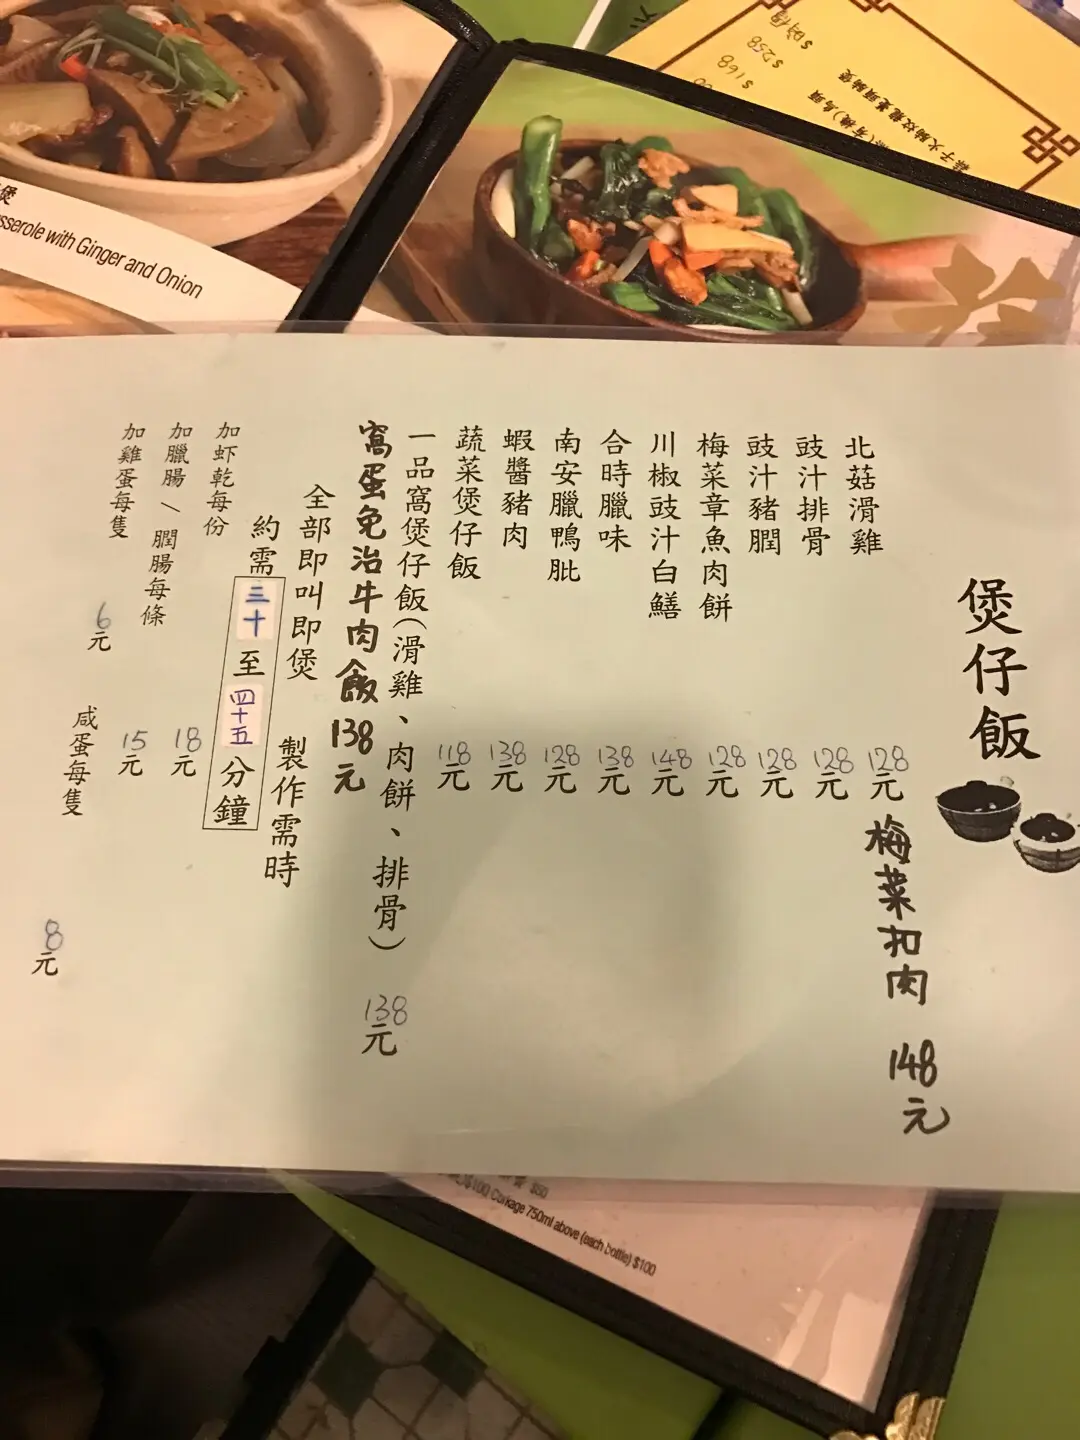 煲仔飯
北菇滑雞 128元
梅菜扣肉 148元
豉汁排骨 128元
豉汁豬膶 128元
梅菜章魚肉餅 128元
川椒豉汁白鱔 148元
合時臘味 138元
南安臘鴨髀 128元
蝦醬豬肉 138元
蔬菜煲仔飯 118元
一品窩煲仔飯(滑雞、肉餅、排骨) 138元
窩蛋免治牛肉飯 138元
全部即叫即煲 製作需時
約需三十至四十五分鐘
加虾乾每份 18元
加臘腸/膶腸每條 15元
加雞蛋每隻 6元
咸蛋每隻 8元
煲
sserole with Ginger and Onion
$168
$258
$50
$100 Corkage 750ml above (each bottle) $100